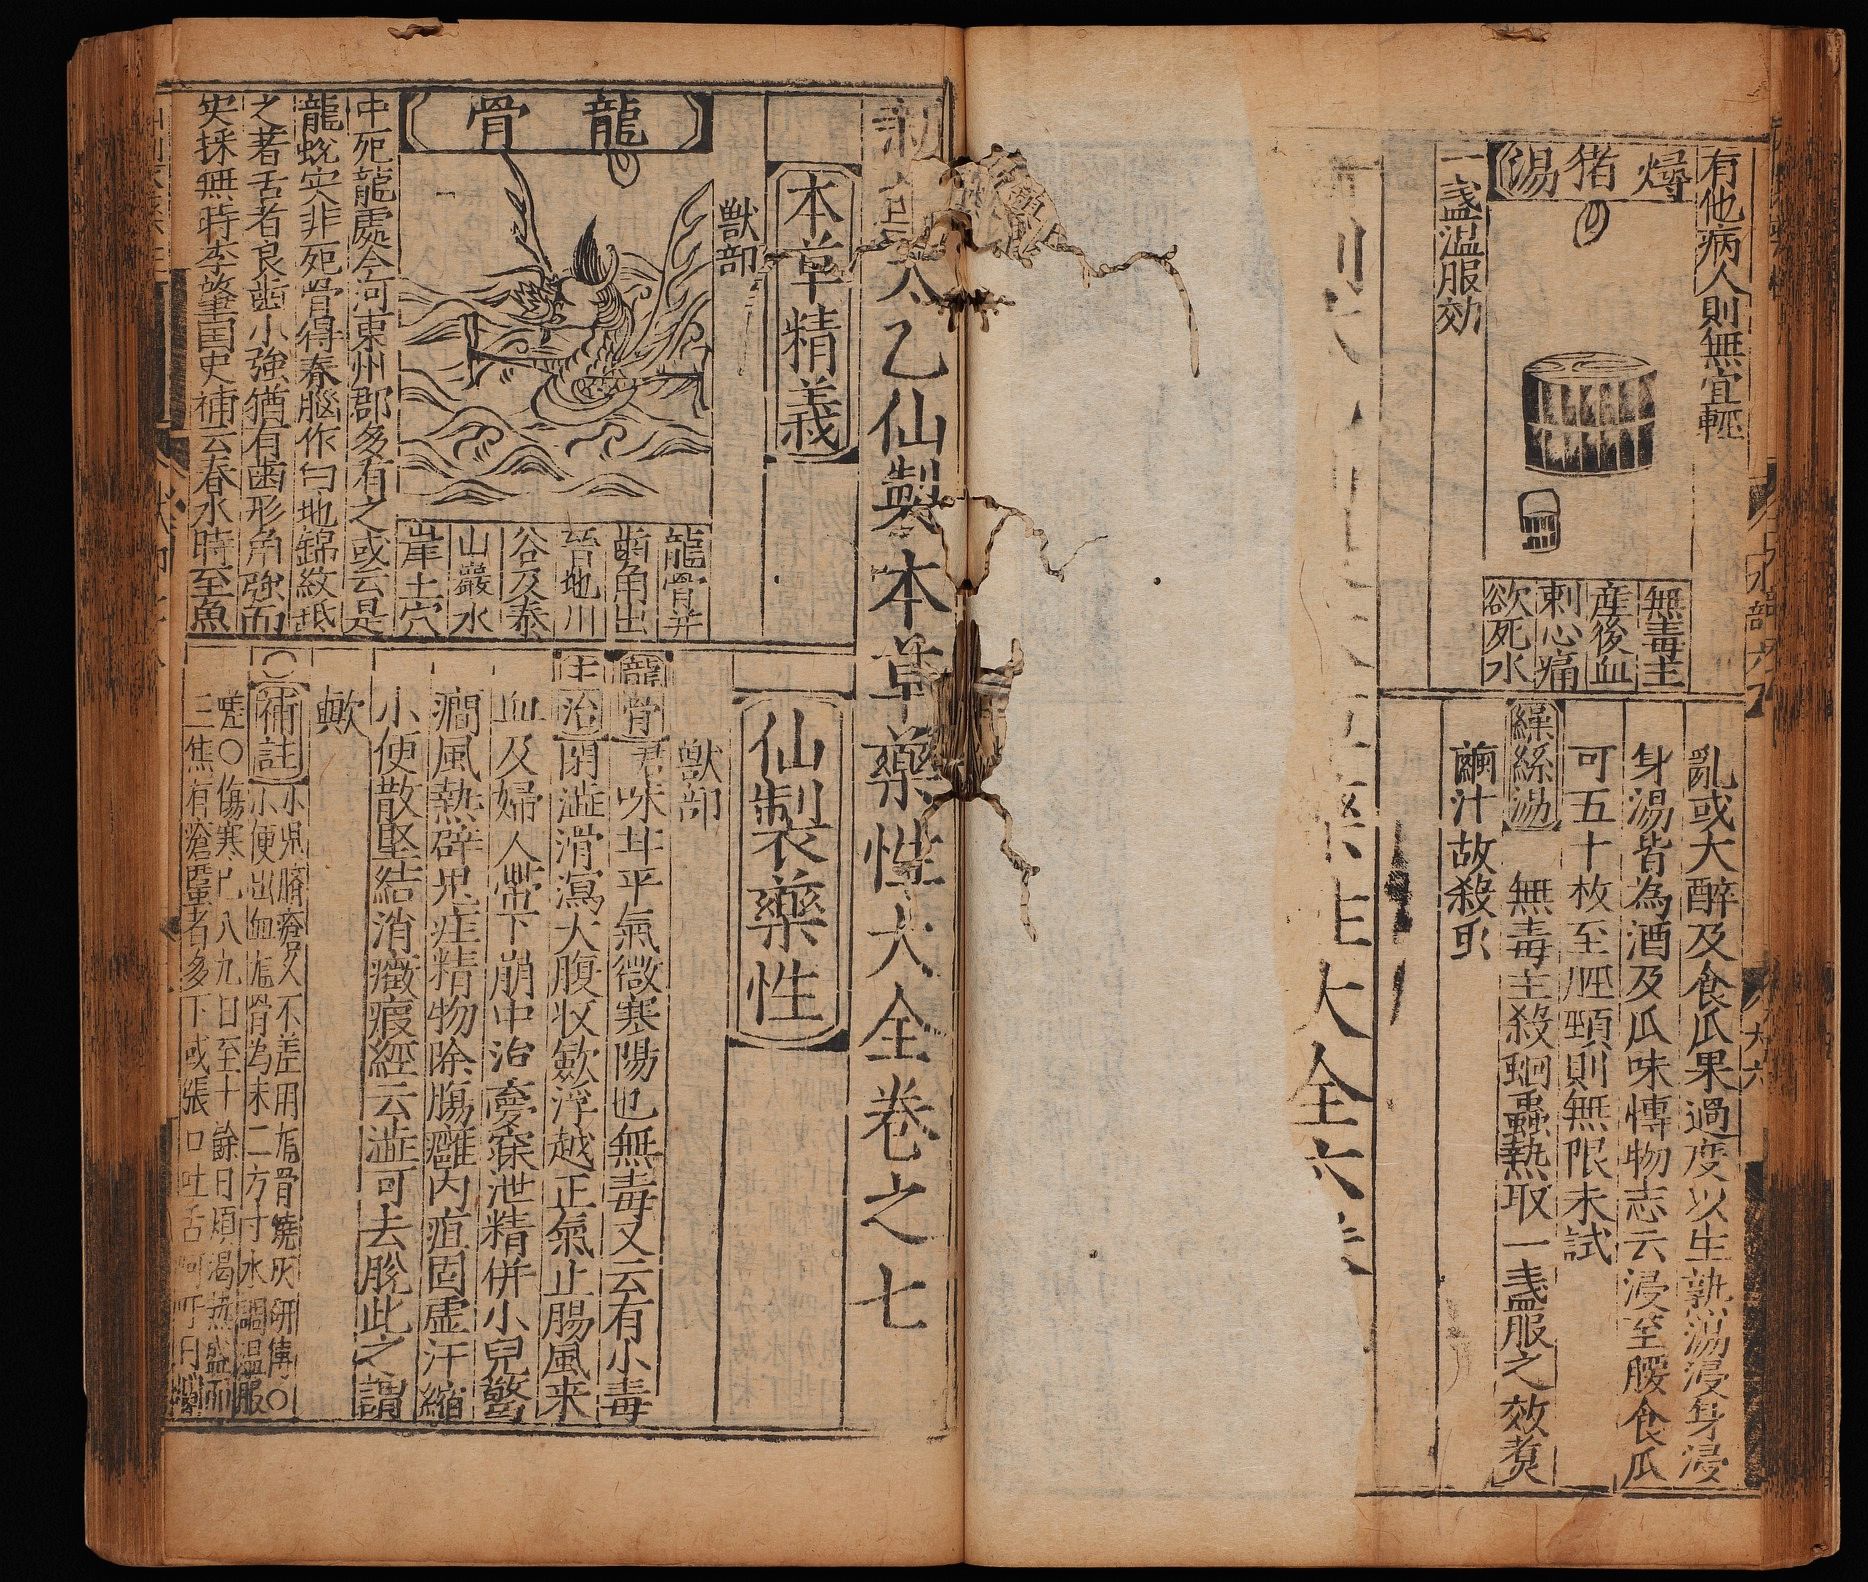 有他病人則無宜輕
燖猪湯
無毒主
産後血
刺心痛
欲死水
一盞温服効
亂或大醉及食瓜果過度以生熟湯浸身浸
身湯皆為酒及瓜味慱物志云浸至腰食瓜
可五十枚至脛頸則無限未試
繰絲湯 無毒主殺蛔蟲熱取一盞服之效煑
繭汁故殺虫
大全六
太乙仙製本草藥性大全卷之七
本草精義
獸部
龍骨
龍骨并
齒角出
晉地川
谷及泰
山巖水
崖土穴
中死龍處今河東州郡多有之或云是
龍蛻实非死骨得春腦作白地錦紋䑛
之著舌者良齒小強猶有齒形角強而
实採無時李肇国史補云春水時至魚
仙製藥性
獸部
龍骨 君味甘平氣微寒陽也無毒又云有小毒
主治 閉澁滑瀉大腹收歛浮越正氣止腸風来
血及婦人帶下崩中治夢寐泄精併小兒驚
癎風熱辟鬼疰精物除腸癰内疽固虛汗縮
小便散堅結消癥瘕經云澁可去脫此之謂
歟
補註 小児臍瘡久不差用龍骨燒灰研傅〇
小便出血龍骨為末二方寸水調温服
〇傷寒巳八九日至十餘日煩渴热盛而
三焦有瘡䘌者多下或張口吐舌